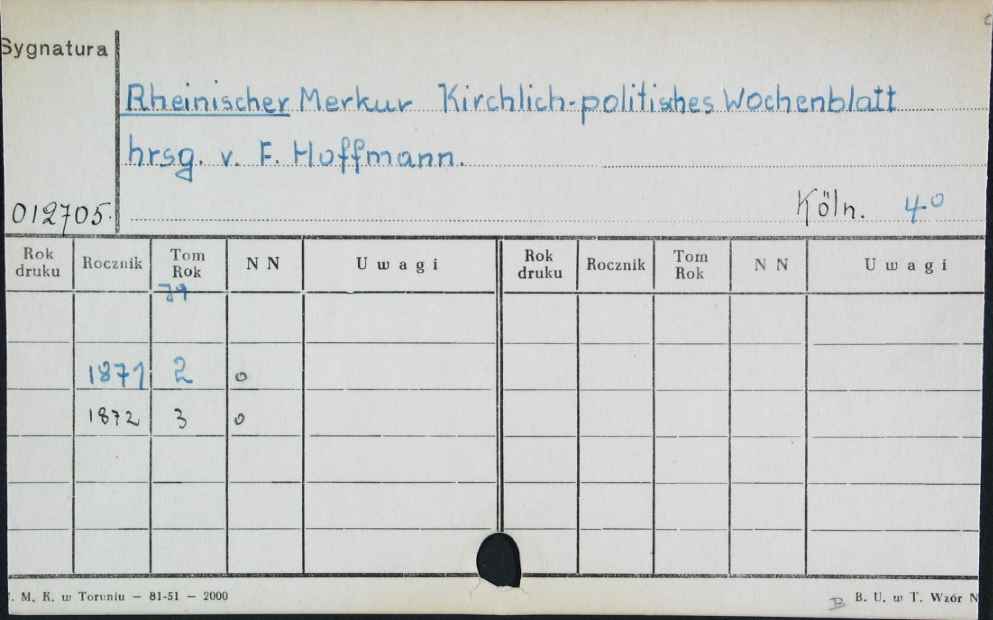 Sygnatura
Rheinischer Merkur Kirchlich-politisches Wochenblatt
hrsg. v. F. Hoffmann.
012705. Köln. 4°
Rok druku Rocznik Tom Rok N N Uwagi Rok druku Rocznik Tom Rok N N Uwagi
1871 2 0
1872 3 0
. M. K. w Toruniu — 81-51 — 2000 B. U. w T. Wzór N